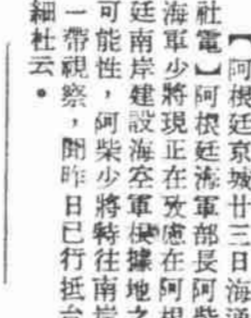 【阿根廷京城廿三日海通
社電】阿根廷海軍部長阿柴
海軍少將現正在攷慮在阿根
廷南岸建設海空軍根據地之
可能性，阿柴少將特往南岸
一帶視察，聞昨日已行抵台
細杜云。